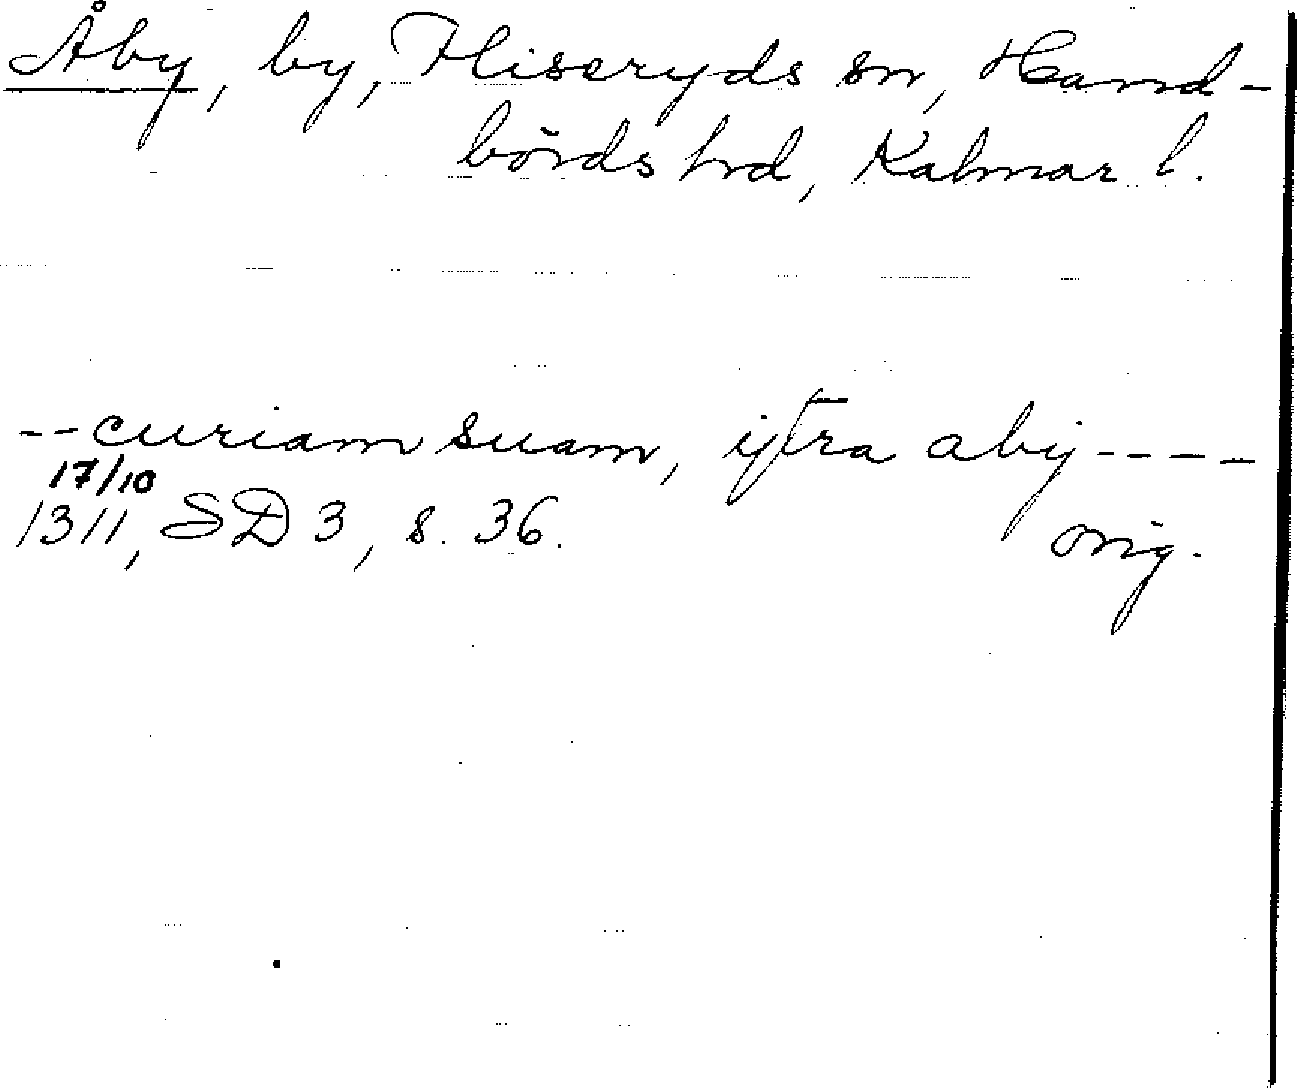 Åby, by, Fliseryds sn, Hand-
börds hrd, Kalmar l.
-- curiam suam, ijtra abij ----
17/10
1311, SD 3, s. 36. orig.